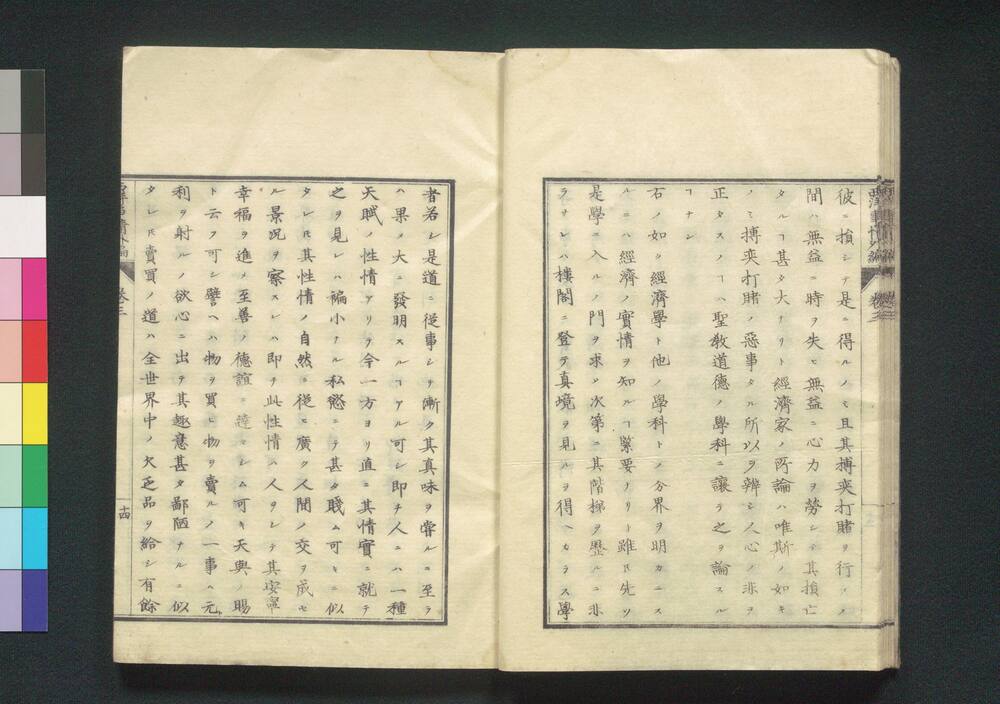 彼ニ損シテ是ニ得ルノミ且其搏奕打賭ヲ行フノ
間ハ無益ニ時ヲ失ヒ無益ニ心力ヲ勞シテ其損亡
タルヿ甚タ大ナリト経濟家ノ所論ハ唯斯ノ如キ
ノミ搏奕打賭ノ惡事タル所以ヲ辨シ人心ノ非ヲ
正タスノヿハ聖教道德ノ學科ニ讓テ之ヲ論スル
ヿナシ
右ノ如ク經濟學ト他ノ學科トノ分界ヲ明カニス
ルニハ經濟ノ實情ヲ知ルヿ緊要ノリト雖𪜈先ツ
是學ニ入ルノ門ヲ求メ次第ニ其階梯ヲ歷ルニ非
ラサレハ樓閣ニ登テ真境ヲ見ルヲ得ヘカラス學
者若シ是道ニ從事シテ漸ク其真味ヲ甞ルニ至テ
ハ果メ大ニ發明スルヿアル可シ即チ人ニハ一種
天賦ノ性情アリテ今一方ヨリ直ニ其情實ニ就テ
之ヲ見レハ褊小ナル私慾ニテ甚タ賤ム可キニ似
タレ𪜈其性情ノ自然ニ從ヒ廣ク人間ノ交ヲ成セ
ル景况ヲ察スレハ即チ此性情ハ人タシテ其安寧
幸福ヲ進メ至善ノ德誼ニ達セシム可キ天與ノ賜
ト云フ可シ譬ヘハ物ヲ買ヒ物ヲ賣ルノ一事ハ元
利ヲ射ルノ欲心ニ出テ其趣意甚タ鄙陋ナルニ似
タレ𪜈賣買ノ道ハ全世界中ノ欠乏品ヲ給シ有餘
卷三
十四